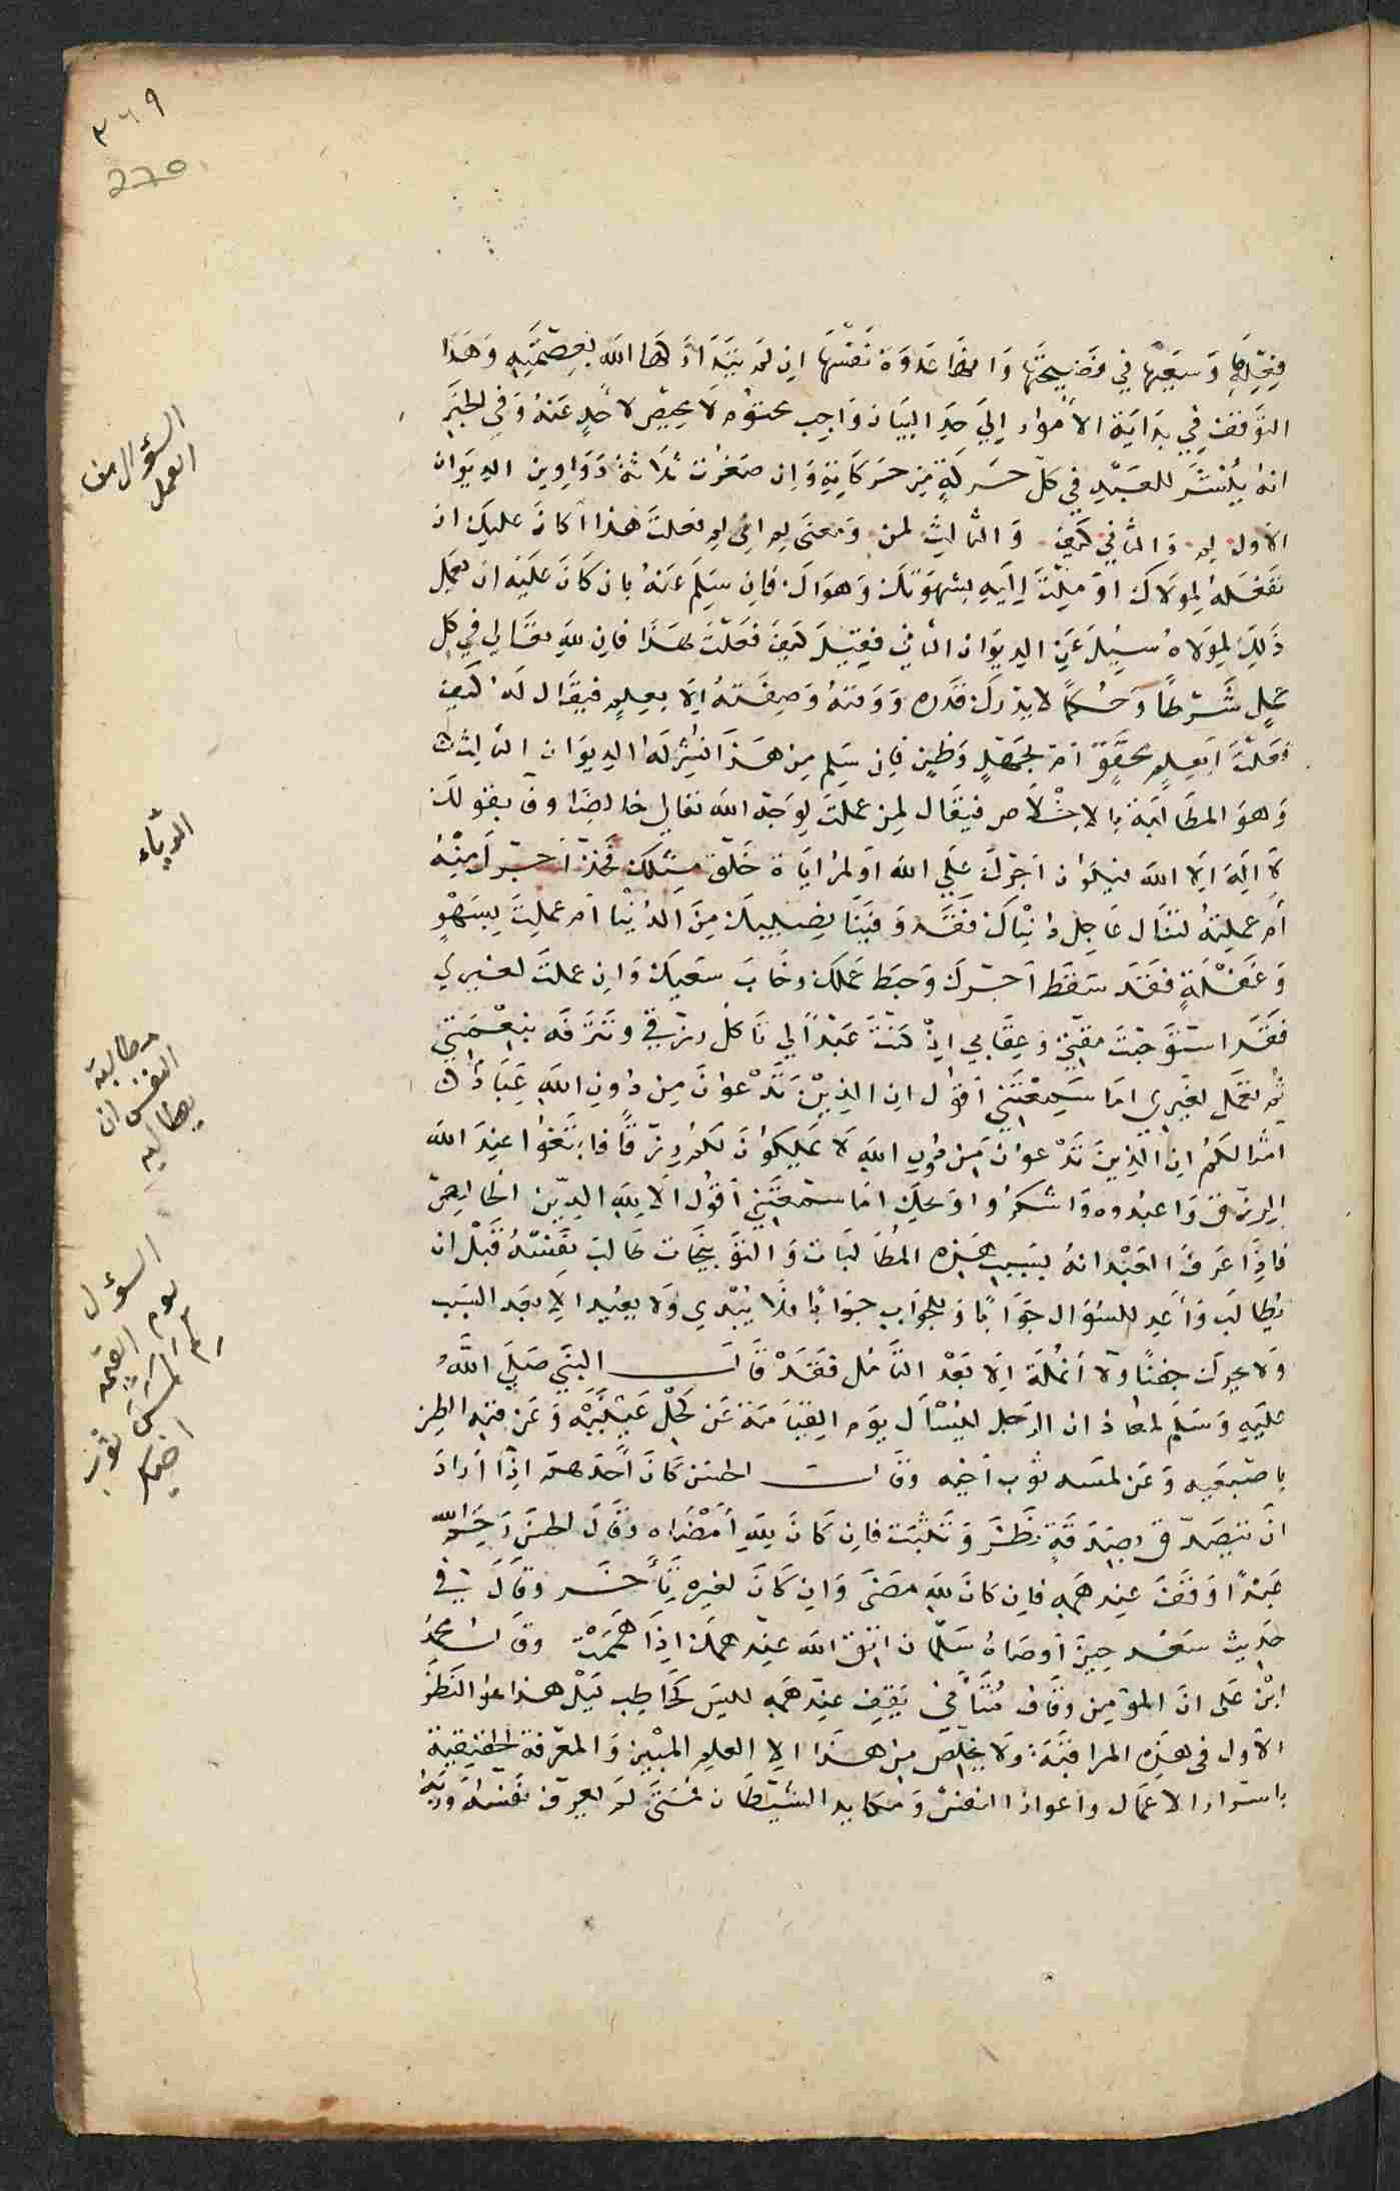 ٣٦٩
270
فعلها وسعيها في فضيحتها وانها عدوة نفسها ان لم يتداركها الله بعصمته وهذا
التوقف في بداية الأمور إلى حد البيان واجب محتوم لا محيص لاحد عنه وفي الخبر
انه ينشر للعبد في كل حركة من حركاته وان صغرت ثلاثة دواوين الديوان
الاول لم والثاني كيف والثالث لمن ومعنى لم اي لم فعلت هذا اكان عليك ان
تفعله لمولاك او ملت اليه بشهوتك وهواك فان سلم عنه بان كان عليه ان يعمل
ذلك لمولاه سئل عن الديوان الثاني فقيل كيف فعلت هذا فان لله تعالى في كل
عمل شرطا وحكما لا يدرك قدره ووقته وصفته الا بعلم فيقال له كيف
فعلت ابعلم محقق ام بجهل وظن فان سلم من هذا نشر له الديوان الثالث
وهو المطالبة بالاخلاص فيقال لمن عملت لوجه الله تعالى خالصا وفا بقولك
لا اله الا الله فيكون اجرك على الله او لمراياة خلق مثلك فخذ اجرك منه
أم عملته لتنال عاجل دنياك فقد وفينا نصيبك من الدنيا ام عملت بسهو
وغفلة فقد سقط اجرك وحبط عملك وخاب سعيك وان عملت لغيري
فقد استوجبت مقتي وعقابي اذ كنت عبدا لي تاكل رزقي وتترفه بنعمتي
ثم تعمل لغيري اما سمعتني اقول ان الذين تدعون من دون الله عباد
امثالكم ان الذين تدعون من دون الله لا يملكون لكم رزقا فابتغوا عند الله
الرزق واعبدوه واشكروا ويحك اما سمعتني أقول الا لله الدين الخالص
فاذا عرف العبد انه بسبب هذه المطالبات والتوبيخات طالب نفسه قبل ان
يطالب وأعد للسؤال جوابا وللجواب صوابا فلا يبدي ولا يعيد الا بعد التثبت
ولا يحرك جفنا ولا أنملة الا بعد التأمل فقد قال النبي صلى الله
عليه وسلم لمعاذ ان الرجل ليسأل يوم القيامة عن كحل عينيه وعن فته الطين
باصبعيه وعن لمسه ثوب أخيه وقال الحسن كان أحدهم اذا أراد
ان يتصدق بصدقة نظر وتثبت فان كان لله أمضاه وقال الحسن رحم الله
عبدا وقف عند همه فان كان لله مضى وان كان لغيره تأخر وقال في
حديث سعد حين أوصاه سلمان اتق الله عند همك اذا هممت وقال محمد
ابن على ان المؤمن وقاف متأني يقف عند همه ليس كحاطب ليل هذا هو النظر
الاول في هذه المراقبة ولا يخلص من هذا الا العلم المتين والمعرفة الحقيقية
باسرار الاعمال واغوار النفس ومكايد الشيطان فمتى لم يعرف نفسه وربه
السؤال من
العمل
الرياء
مطالبة
النفس ان
يطالبه
السؤل
يوم
القيمة
لمس ثوب
اخيكم